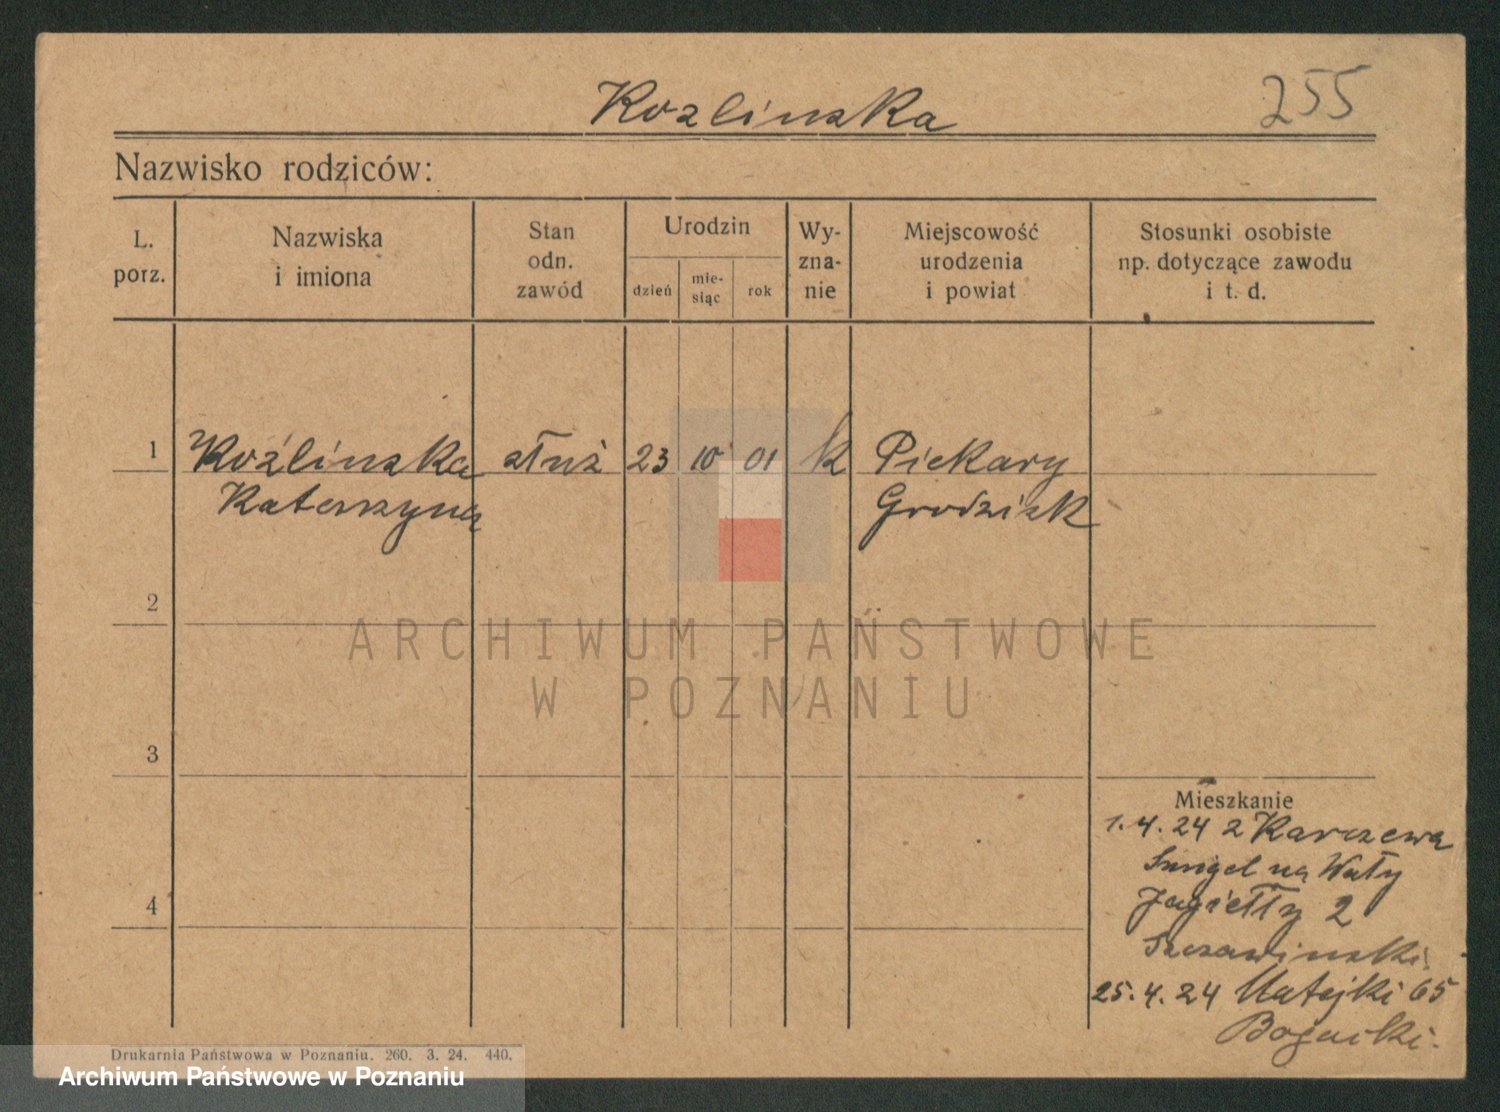 Kozlinska
255
Nazwisko rodziców:
L. porz.
Nazwiska i imiona
Stan odn. zawód
Urodzin
dzień
mie-siąc
rok
Wy-zna-nie
Miejscowość urodzenia i powiat
Stosunki osobiste np. dotyczące zawodu i t. d.
1 Koźlinska służ 23 10 01 k Piekary
Katarzyna Grodzisk
2
ARCHIWUM PAŃSTWOWE
W POZNANIU
3
Mieszkanie
1.4.24 z Karczewa
Śmigel na Wały
4
Jagiełły 2
Szczawinski
25.4.24 Matejki 65
Bogacki.
Drukarnia Państwowa w Poznaniu. 260. 3. 24. 440.
Archiwum Państwowe w Poznaniu